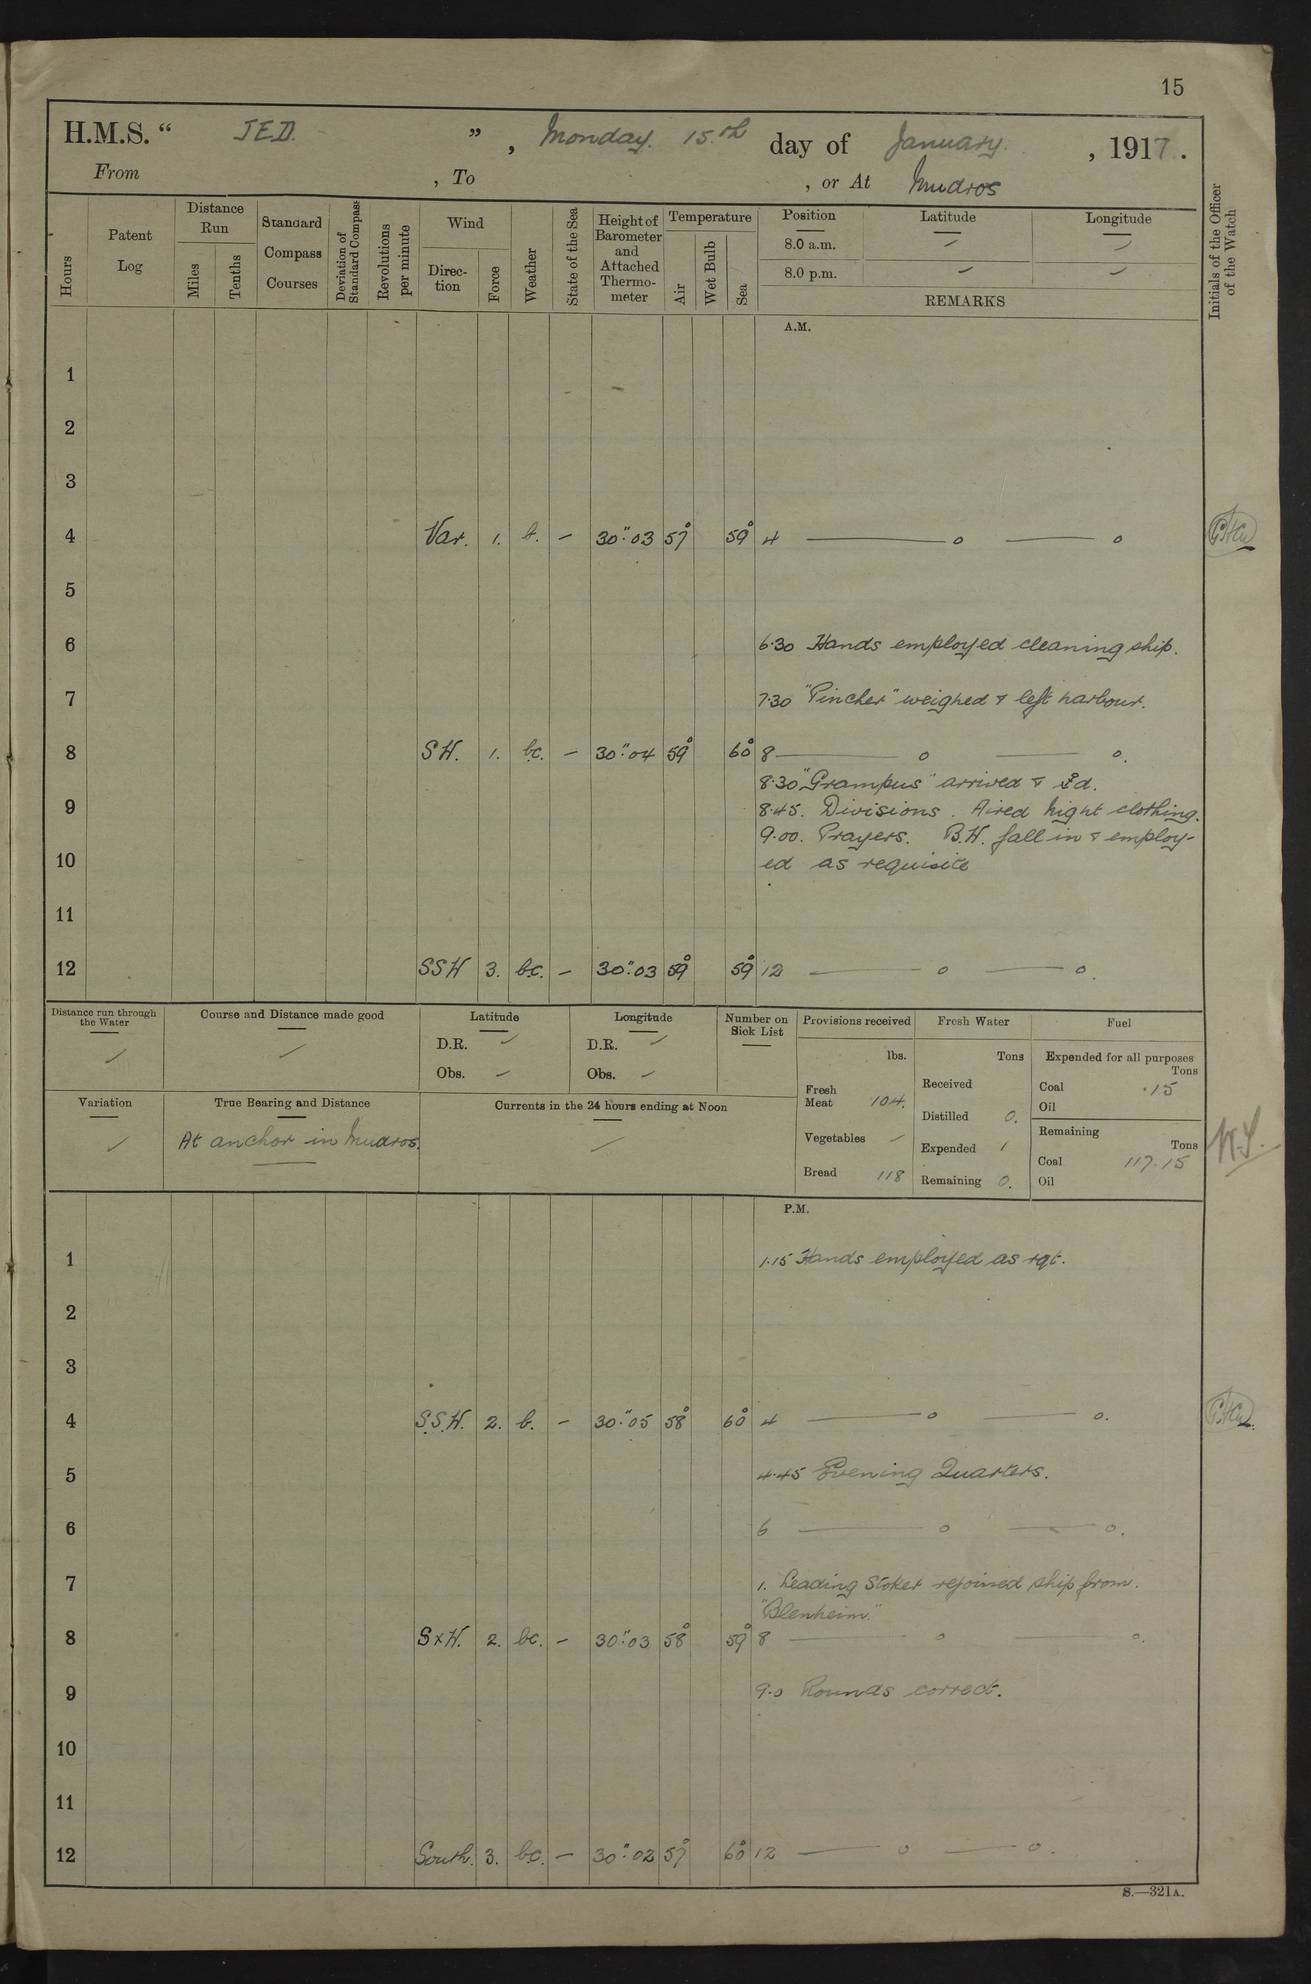 15
H.M.S. " JED. ", Monday. 15.th day of January. , 1917.
From , To , or At Mudros
Hours
Patent Log
Distance Run
Miles
Tenths
Standard Compass Courses
Deviation of Standard Compass
Revolutions per minute
Wind
Direction
Force
Weather
State of the Sea
Height of Barometer and Attached Thermometer
Temperature
Air
Wet Bulb
Sea
Position Latitude Longitude
8.0 a.m. – –
8.0 p.m. – –
REMARKS
Initials of the Officer of the Watch
A.M.
1
2
3
4 Var. 1. b. – 30".03 57° 59° 4 —— o —— o
5
6 6.30 Hands employed cleaning ship.
7 7.30 "Pincher" weighed & left harbour.
8 SW. 1. bc. – 30".04 59° 60° 8 —— o —— o.
8.30 "Grampus" arrived & ⚓d.
9 8.45. Divisions. Aired night clothing.
9.00. Prayers. B.W. fall in & employ-
10 ed as requisite
11
12 SSW 3. bc. – 30".03 59° 59° 12 —— o —— o.
Distance run through the Water
–
Course and Distance made good
–
Latitude
D.R. –
Obs. –
Longitude
D.R. –
Obs. –
Number on Sick List
—
Provisions received
lbs.
Fresh Meat 104.
Vegetables –
Bread 118
Fresh Water
Tons
Received
Distilled 0.
Expended 1
Remaining 0.
Fuel
Expended for all purposes
Tons
Coal .15
Oil
Remaining
Tons
Coal 117.15
Oil
Variation
–
True Bearing and Distance
At anchor in Mudros.
Currents in the 24 hours ending at Noon
–
P.M.
1 1.15 Hands employed as rqt.
2
3
4 S.S.W. 2. b. – 30".05 58° 60° 4 —— o —— o.
5 4.45 Evening Quarters.
6 6 —— o —— o.
7 1. Leading Stoker rejoined ship from.
"Blenheim."
8 SxW. 2. bc. – 30".03 58° 59° 8 —— o —— o.
9 9.0 Rounds correct.
10
11
12 South. 3. bc. – 30".02 57° 60° 12 —— o —— o.
S.—321A.